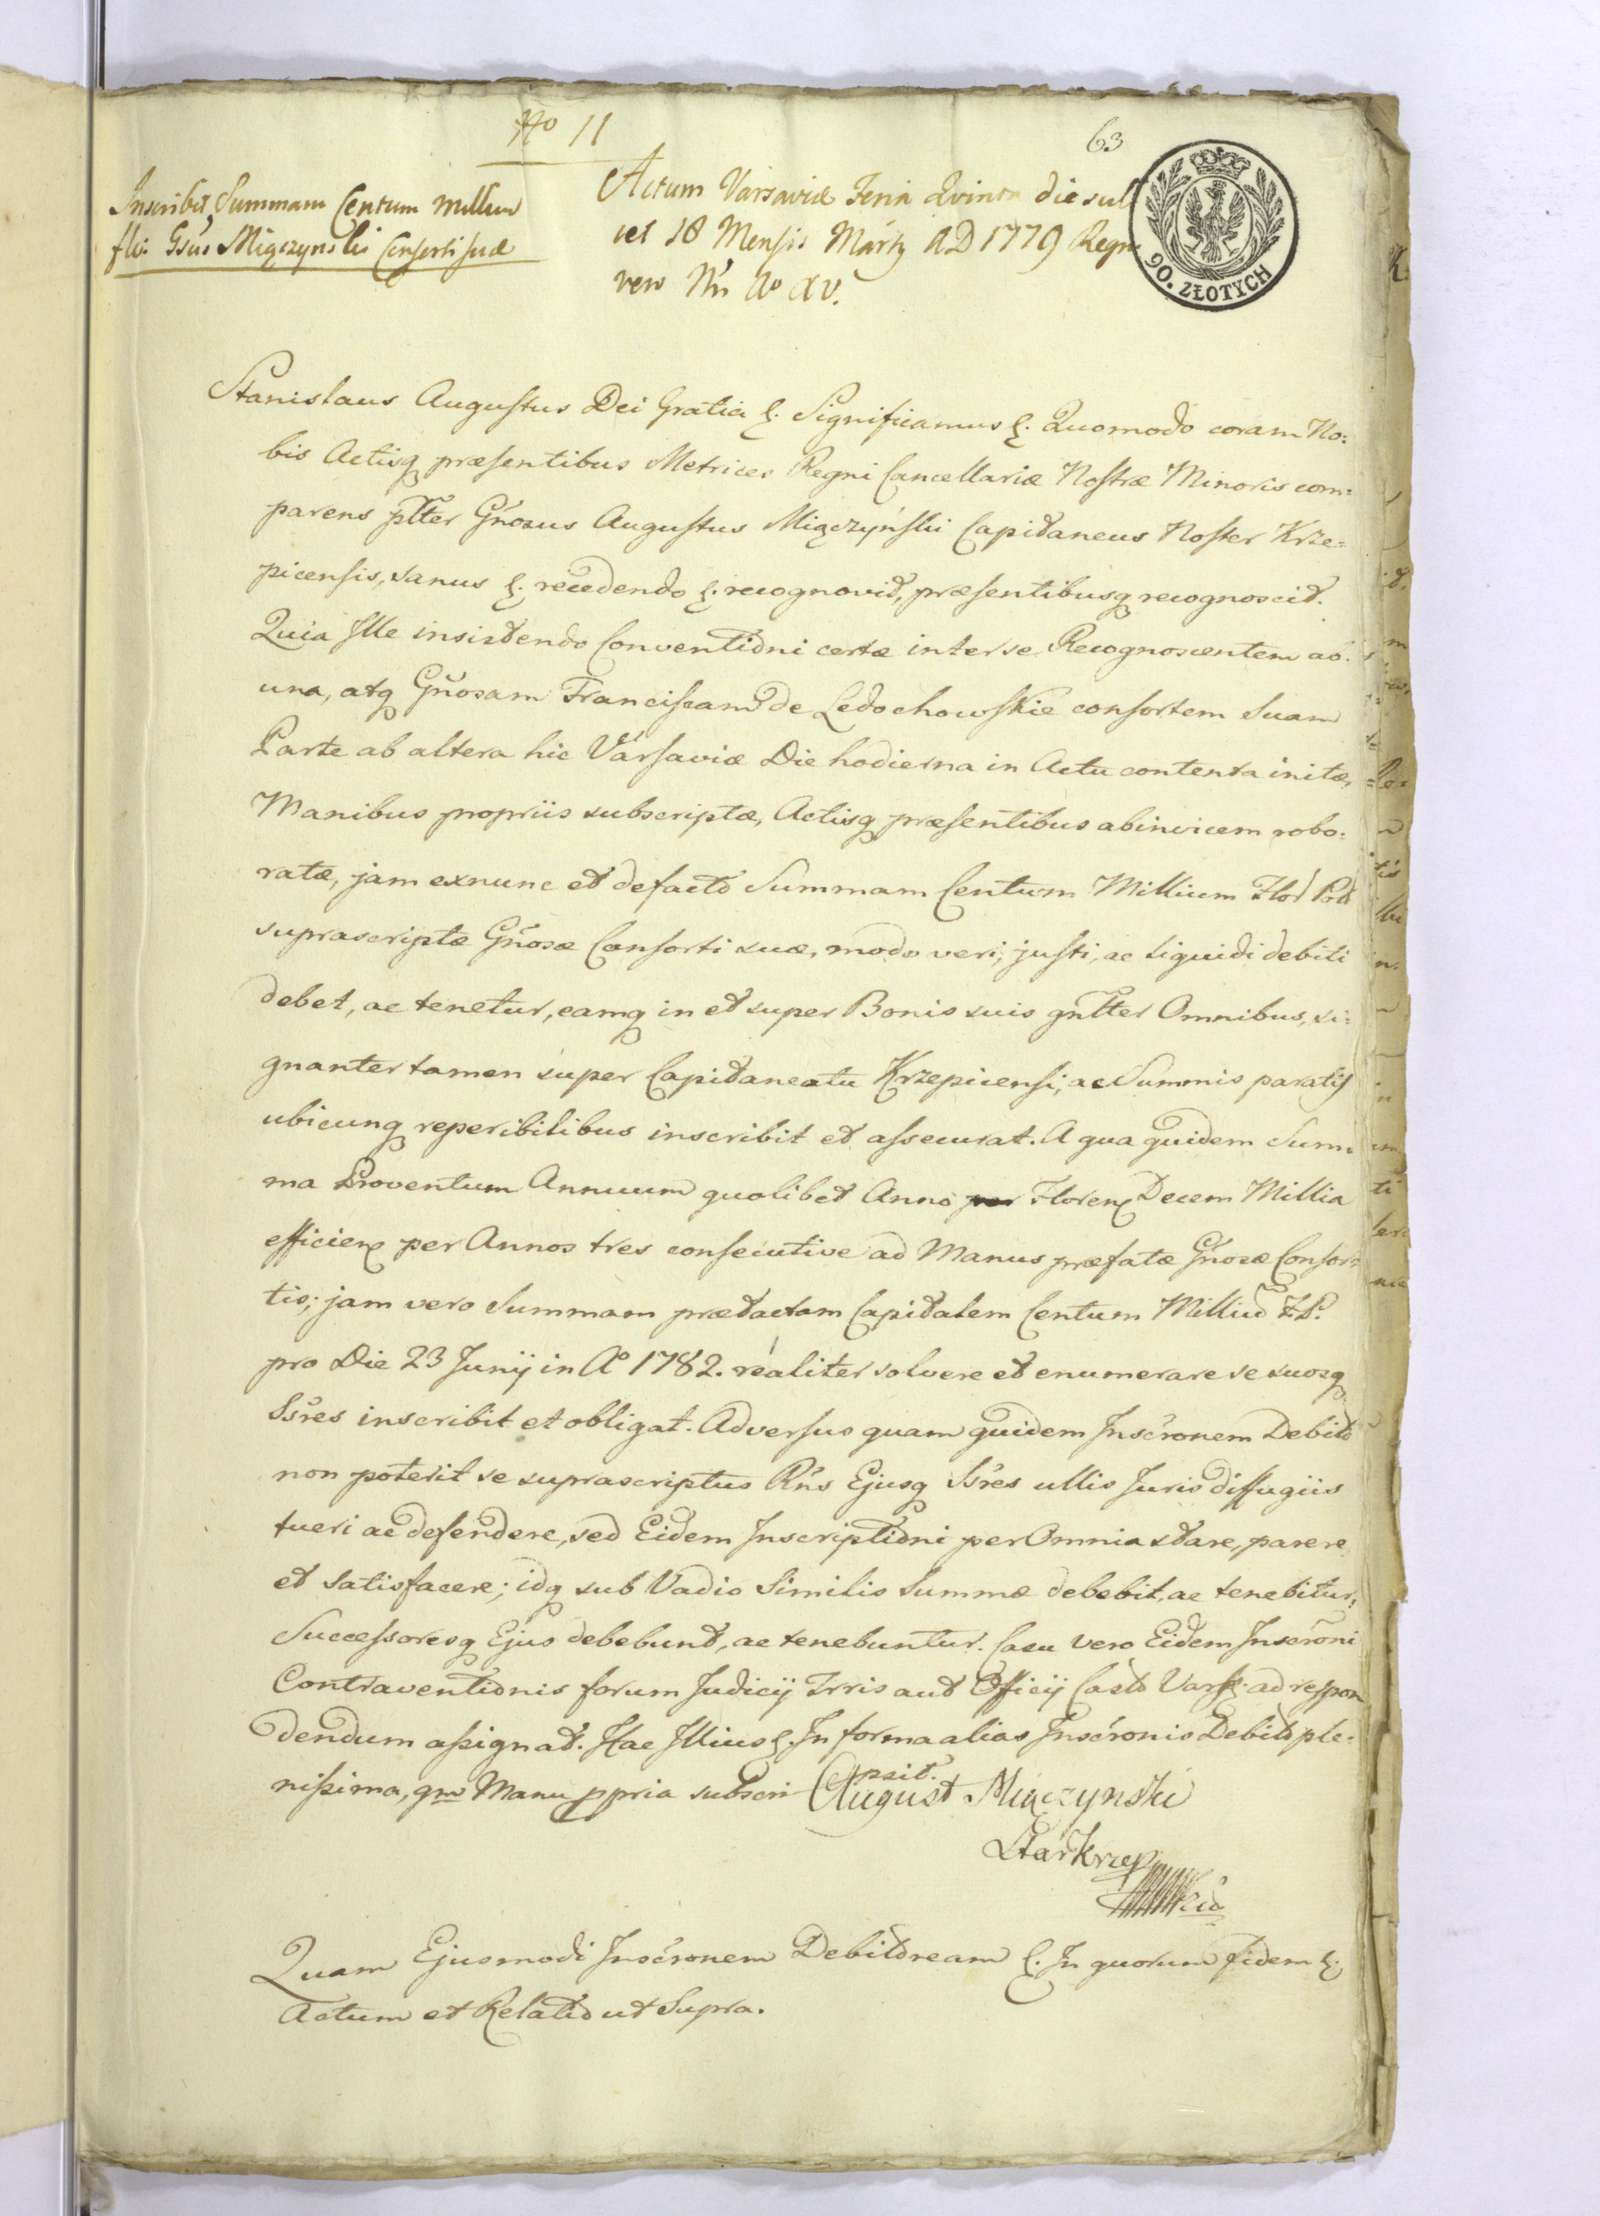 No 11
63
Inscribit Summam Centum millium
flo. Gsus Miączynski Consorti suæ
Actum Varsaviæ Feria Qvinta die scil
icet 18 Mensis Martÿ AD 1779 Regni
vero Nri Ao XV.
90. ZŁOTYCH
Stanislaus Augustus Dei Gratia &. Significamus &. Quomodo coram No:
bis Actisq præsentibus Metrices Regni Cancellariæ Nostræ Minoris com:
parens pltter Gnosus Augustus Miączyński Capitaneus Noster Krze:
picensis, sanus &. recedendo &. recognovit, præsentibusq recognoscit.
Quia Ille insistendo Conventioni certæ inter se Recognoscentem ab
una, atq Gnosam Franciscam de Ledochowskie consortem Suam
Parte ab altera hic Varsaviæ Die hodierna in Actu contenta initæ,
Manibus propriis subscriptæ, Actisq præsentibus abinvicem robo:
ratæ, jam exnunc et defacto Summam Centum Millium Flor Pol
suprascriptæ Gnosæ Consorti suæ, modo veri, justi, ac liquidi debiti
debet, ac tenetur, eamq in et super Bonis suis gnlter Omnibus, si:
gnanter tamen super Capitaneatu Krzepicensi, ac Summis paratis
ubicunq reperibilibus inscribit et assecurat. A qua quidem Sum:
ma Proventum Annuum quolibet Anno Floren Decem Millia
efficien per Annos tres consecutive ad Manus præfatæ Gnosæ Consor:
tis; jam vero Summam prætactam Capitalem Centum Milliu F. P.
pro Die 23 Junÿ in Ao 1782. realiter solvere et enumerare se suosq
Ssres inscribit et obligat. Adversus quam quidem Inscronem Debito
non poterit se suprascriptus Rns Ejusq Ssres ullis Juris diffugiis
tueri ac defendere, sed Eidem Inscriptioni per Omnia stare, parere
et satisfacere; idq sub Vadio similis Summæ debebit, ac tenebitur,
Successoresq Ejus debebunt, ac tenebuntur. Casu vero Eidem Inscroni
Contraventionis forum Judicÿ Trris aut Officÿ Castr Vars: ad respon
dendum assignat. Hac Illius &. In forma alias Inscronis Debito ple:
nissima, qm Manu ppria subscri
psit.
August Miączynski
Star Krzep
Quam Ejusmodi Inscronem Debitoream &. In quorum fidem &.
Actum et Relatio ut Supra.